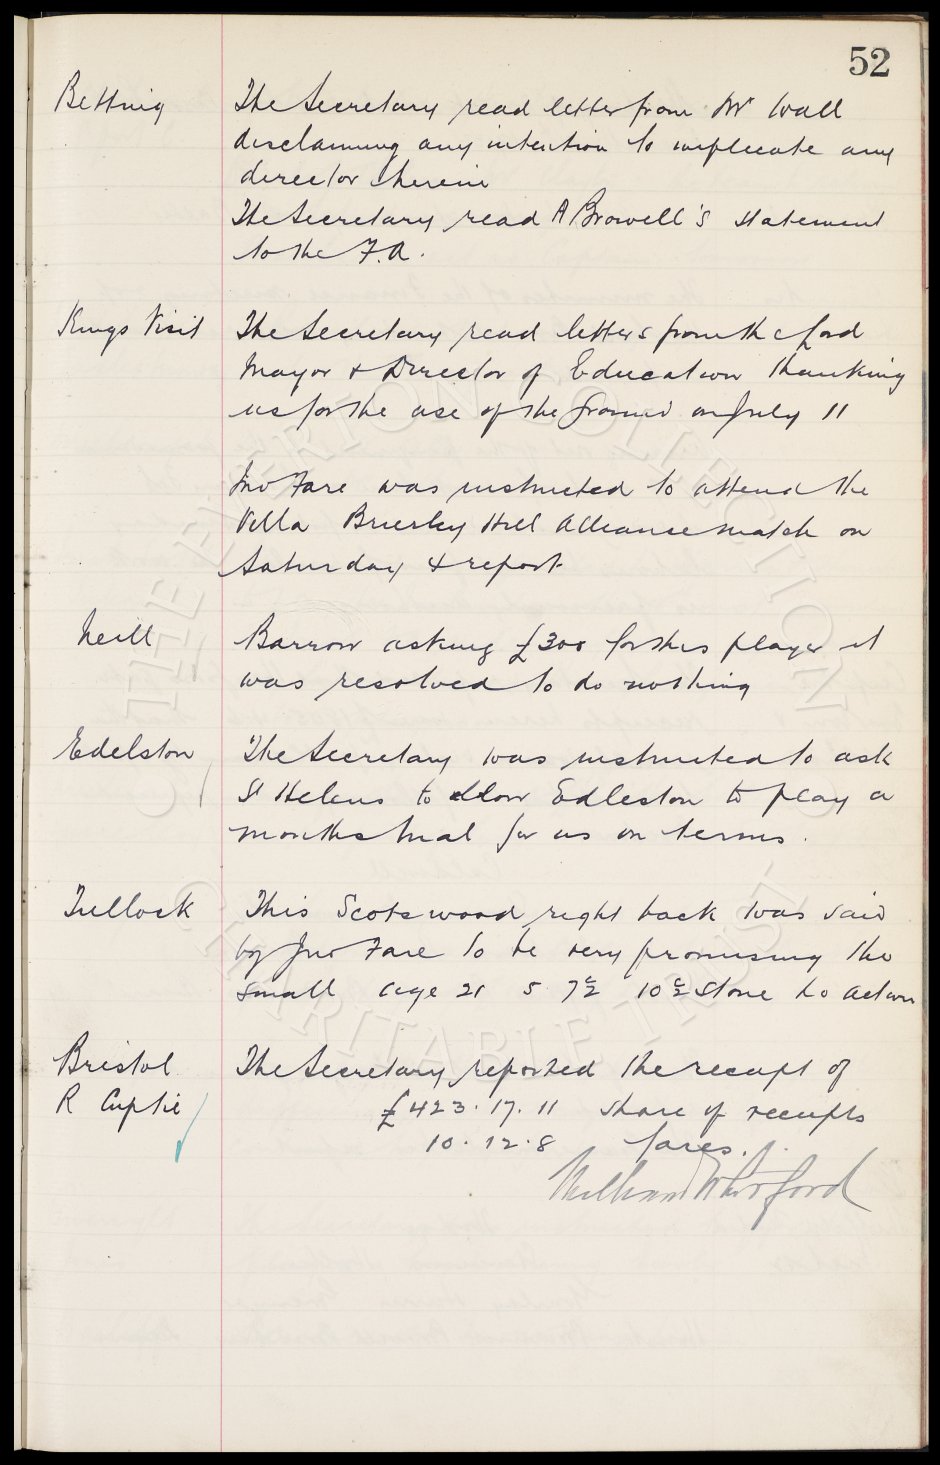 52
Betting The Secretary read letter from Mr Wall
disclaiming any intention to implicate any
director therein
The Secretary read A Browell's statement
to the F.A.
Kings Visit The Secretary read letters from the Lord
Mayor & Director of Education thanking
us for the use of the ground on July 11
Jno Fare was instructed to attend the
Villa Brierley Hill Alliance match on
Saturday & report
Neill Barrow asking £300 for this player it
was resolved to do nothing
Edelston The Secretary was instructed to ask
St Helens to allow Edleston to play a
months trial for us on terms.
Tullock This Scotswood right back was said
by Jno Fare to be very promising tho
small age 21 5 7½ 10½ Stone No action
Bristol The Secretary reported the receipt of
R Cuptie £423.17.11 share of receipts
10.12.8 fares.
William Whitford
THE EVERTON COLLECTION
CHARITABLE TRUST